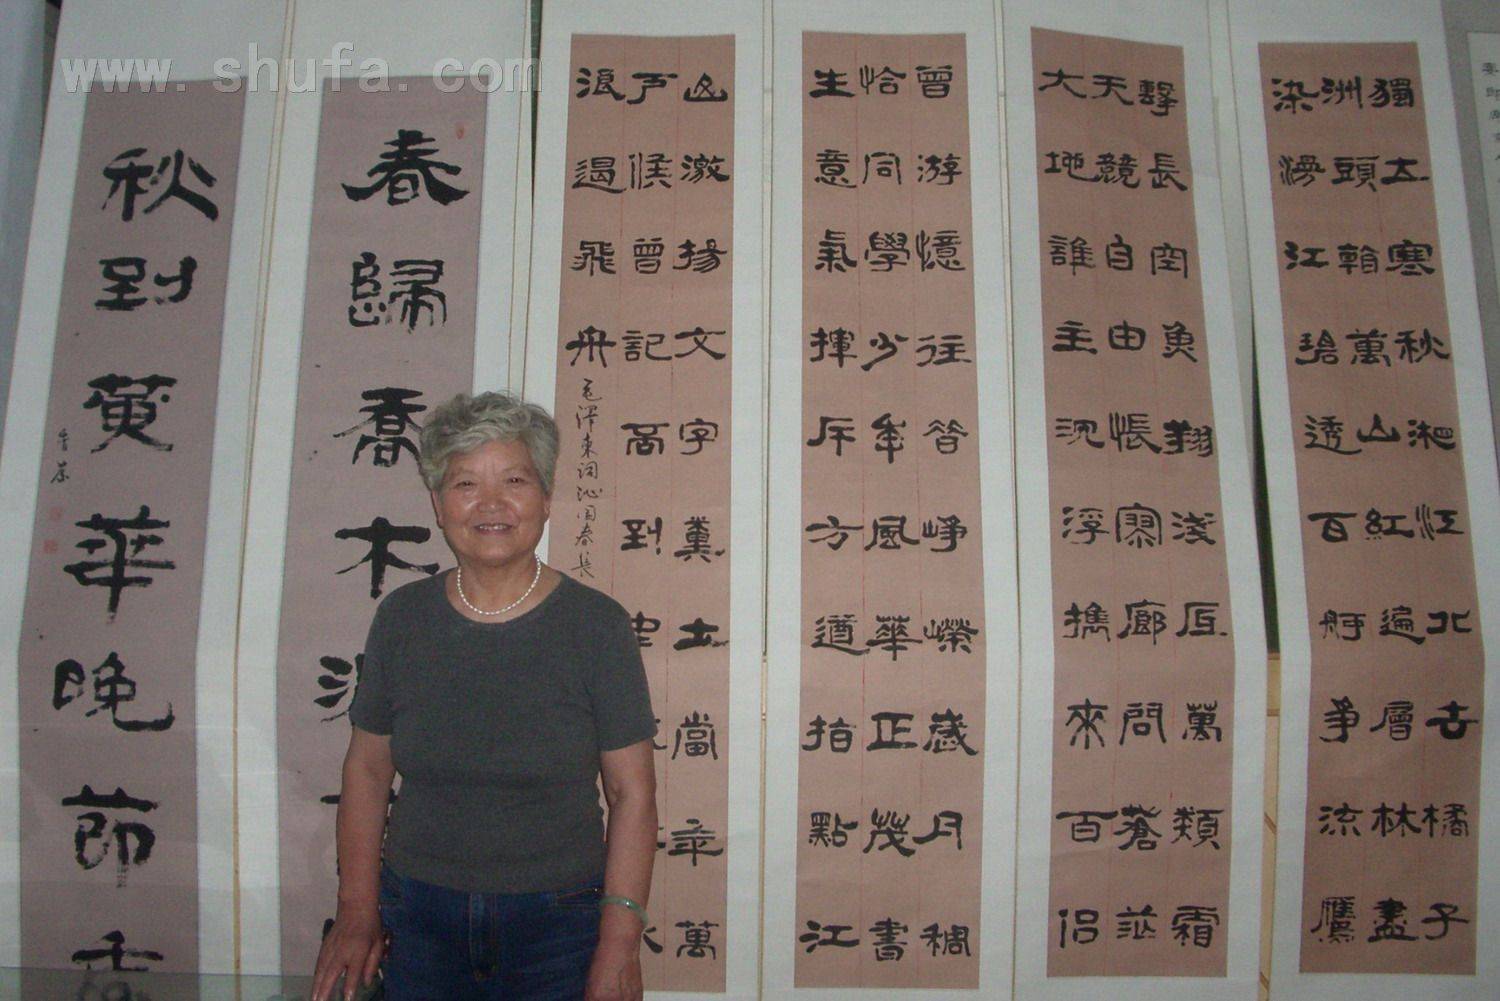 www.shufa.com
獨立寒秋湘江北去橘子
洲頭看萬山紅遍層林盡
染漫江碧透百舸爭流鷹
擊長空魚翔淺底萬類霜
天競自由悵寥廓問蒼茫
大地誰主沈浮攜來百侶
曾游憶往昔崢嶸歲月稠
恰同學少年風華正茂書
生意氣揮斥方遒指點江
山激揚文字糞土當年萬
戶侯曾記否到
浪遏飛舟
毛澤東詞沁園春長
春歸喬木
秋到黃華晚節香